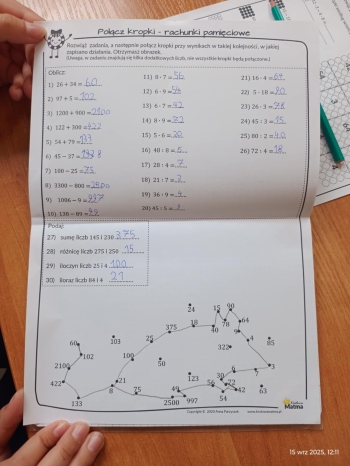 Połącz kropki - rachunki pamięciowe
Rozwiąż zadania, a następnie połącz kropki przy wynikach w takiej kolejności, w jakiej
zapisano działania. Otrzymasz obrazek.
(Uwaga, w zadaniu znajduje się kilka dodatkowych liczb, nie wszystkie kropki będą połączone.)
Oblicz:
1) 26 + 34 = 60
2) 97 + 5 = 102
3) 1200 + 900 = 2100
4) 122 + 300 = 422
5) 54 + 79 =
6) 45 – 37 = 8
7) 100 – 25 = 75
8) 3300 – 800 = 2500
9) 1006 – 9 = 997
10) 138 – 89 = 49
11) 8 · 7 = 56
12) 6 · 9 = 54
13) 6 · 7 = 42
14) 8 · 9 = 72
15) 5 · 6 = 30
16) 48 : 8 = 6
17) 28 : 4 = 7
18) 21 : 7 = 3
19) 36 : 9 = 4
20) 45 : 5 =
21) 16 · 4 = 64
22) 5 · 18 = 90
23) 26 · 3 = 78
24) 45 : 3 = 15
25) 80 : 2 = 40
26) 72 : 4 = 18
Podaj:
27) sumę liczb 145 i 230 375
28) różnicę liczb 275 i 250
29) iloczyn liczb 25 i 4 100
30) iloraz liczb 84 i 4 21
24
15
90
64
375
18
40
78
9
4
85
60
103
25
322
102
100
50
2100
3
7
6
30
123
422
21
8
75
49
56
72
42
63
133
2500
997
54
Matma
15 wrz 2025, 12:11